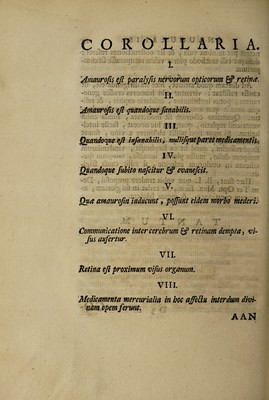 COROLLARIA.
I.
Amaurosis est paralysis nervorum opticorum & retinæ.
II.
Amaurosis est quandoque sanabilis.
III.
Quandoque est insanabilis, nullisque paret medicamentis.
IV.
Quandoque subito nascitur & evanescit.
V.
Quæ amaurosin inducunt, possunt eidem morbo mederi.
VI.
Communicatione inter cerebrum & retinam dempta, vi-
sus aufertur.
VII.
Retina est proximum visus organum.
VIII.
Medicamenta mercurialia in hoc affectu interdum divi-
nam opem ferunt.
AAN